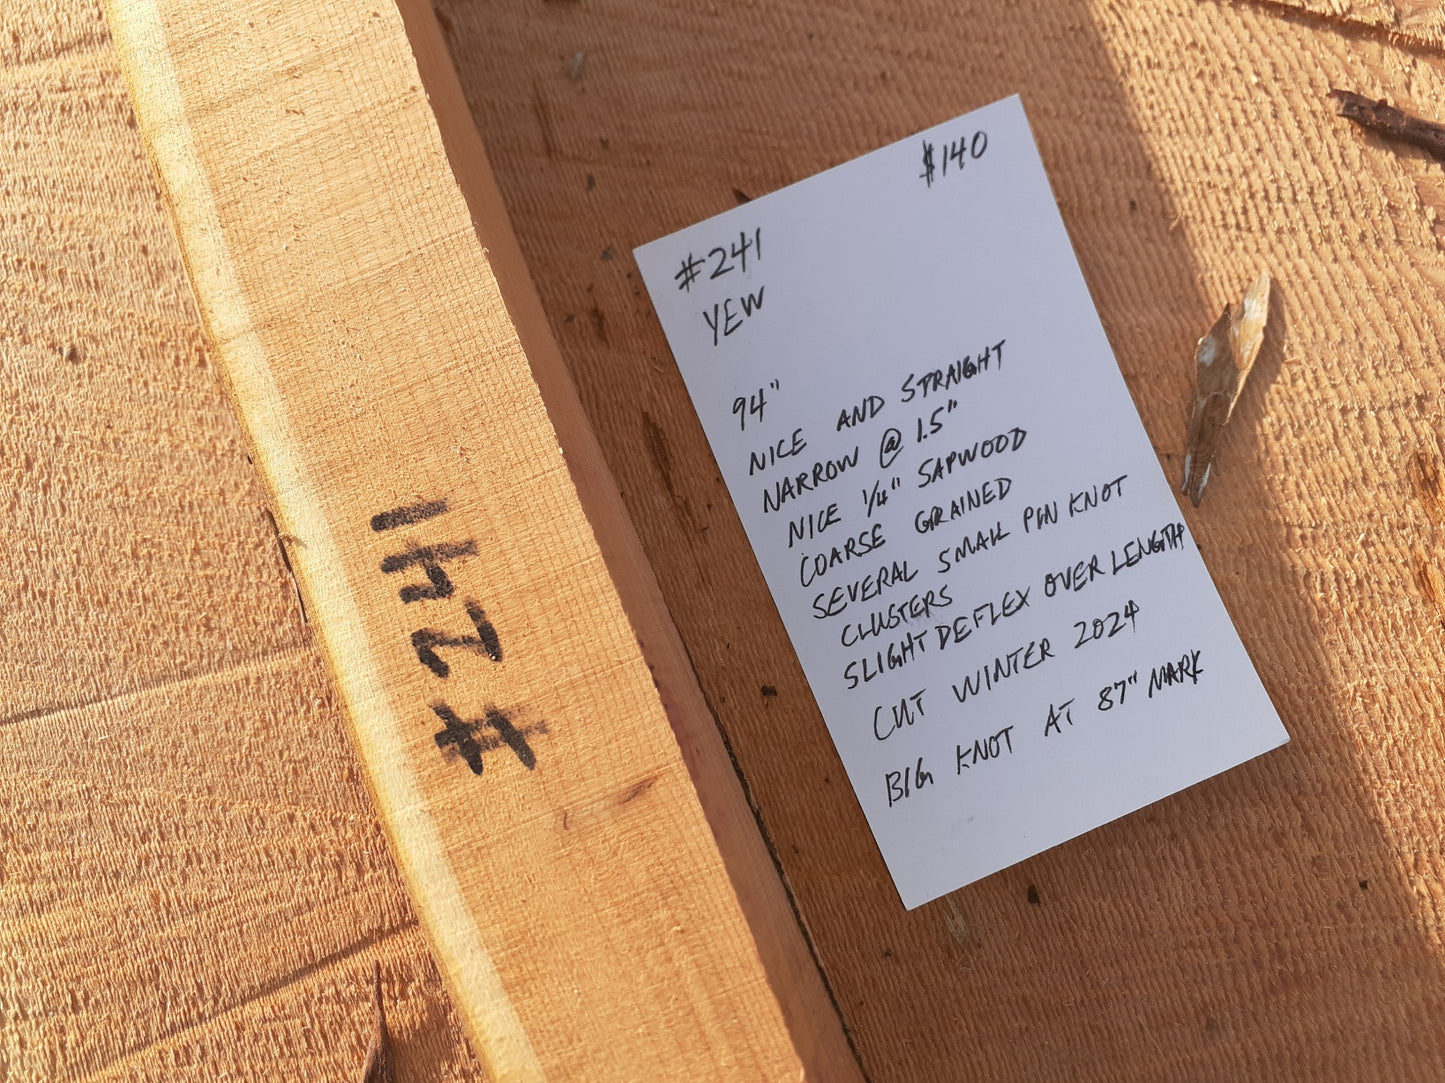 #241
$140
#241
YEW
94"
NICE AND STRAIGHT
NARROW @ 1.5"
NICE 1/4" SAPWOOD
COARSE GRAINED
SEVERAL SMALL PIN KNOT
CLUSTERS
SLIGHT DEFLEX OVER LENGTH
CUT WINTER 2024
BIG KNOT AT 87" MARK